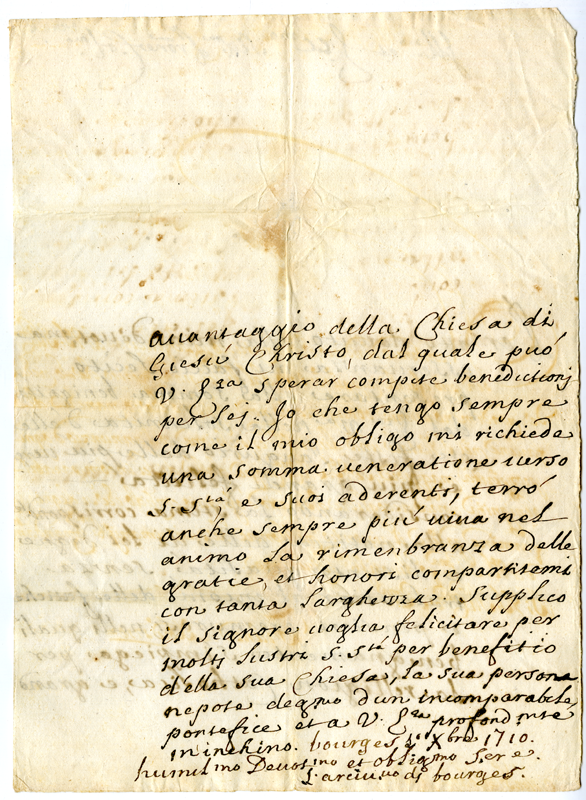 auantaggio della Chiesa di
Giesù Christo, dal quale può
V. Eza sperar compite benedictionj
per Lej. Jo che tengo sempre
come il mio obligo mi richiede
una somma veneratione verso
S. Stà, e suoi aderenti, terrò
anche sempre più viva nel
animo la rimenbranza delle
gratie, et honori compartitemi
con tanta larghezza. Supplico
il signore voglia felicitare per
molti lustri S. Stà per benefitio
della sua Chiesa, la sua persona
nepote degno d'un incomparabile
pontefice et a V. Eza profondmte
m'inchino. bourges Xbre 1710.
humilmo Devotmo et obligmo Sere.
L'arcivvo di bourges.